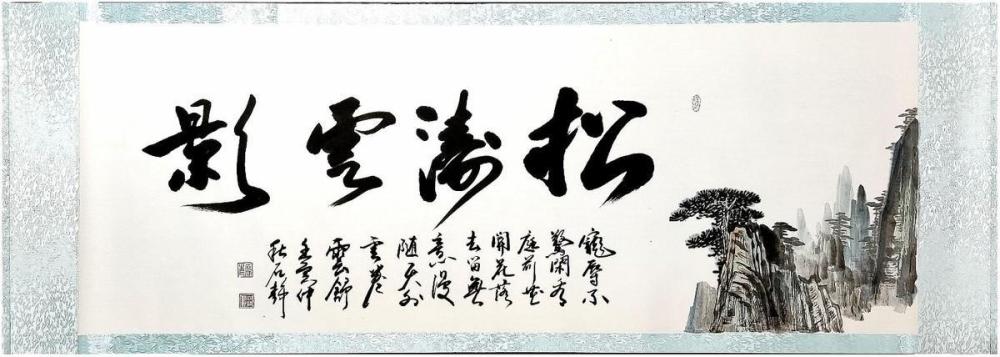 松濤雲影
寵辱不
驚閑看
庭前花
開花落
去留無
意漫
隨天外
雲卷
雲舒
壬寅仲
秋石